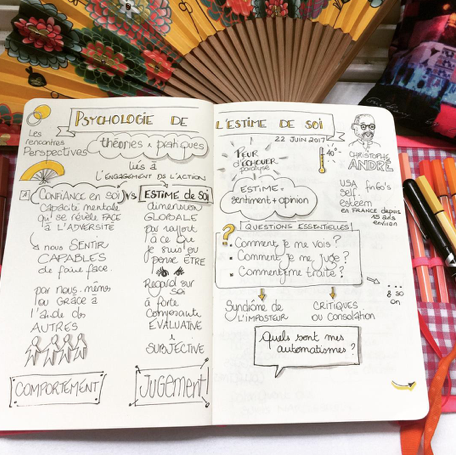 PSYCHOLOGIE DE L'ESTIME DE SOI
Les
rencontres
Perspectives
théories & pratiques
liés à
L'ENGAGEMENT DS L'ACTION
CONFIANCE EN SOI VS ESTIME DE SOI
Capacité mentale
qui se révèle FACE
à L'ADVERSITÉ
nous SENTIR
CAPABLES
de faire face
par nous-mêmes
ou GRÂCE à
l'aide des
AUTRES
COMPORTEMENT
dimension
GLOBALE
par rapport
à ce que
je suis ou
pense ÊTRE
Regard sur
SOI
à forte
composante
ÉVALUATIVE
&
SUBJECTIVE
JUGEMENT
22 JUIN 2017
PEUR
D'ÉCHOUER
paralyse
40°
CHRISTOPHE
ANDRÉ
ESTIME =
sentiment + opinion
USA
Self.
esteem
EN FRANCE depuis
15 ans
environ
? QUESTIONS ESSENTIELLES
• Comment je me vois?
• Comment je me juge?
• Comment je me traite?
...
& so
on
Syndrôme de
L'IMPOSTEUR
CRITIQUES
OU Consolation
Quels sont mes
automatismes?